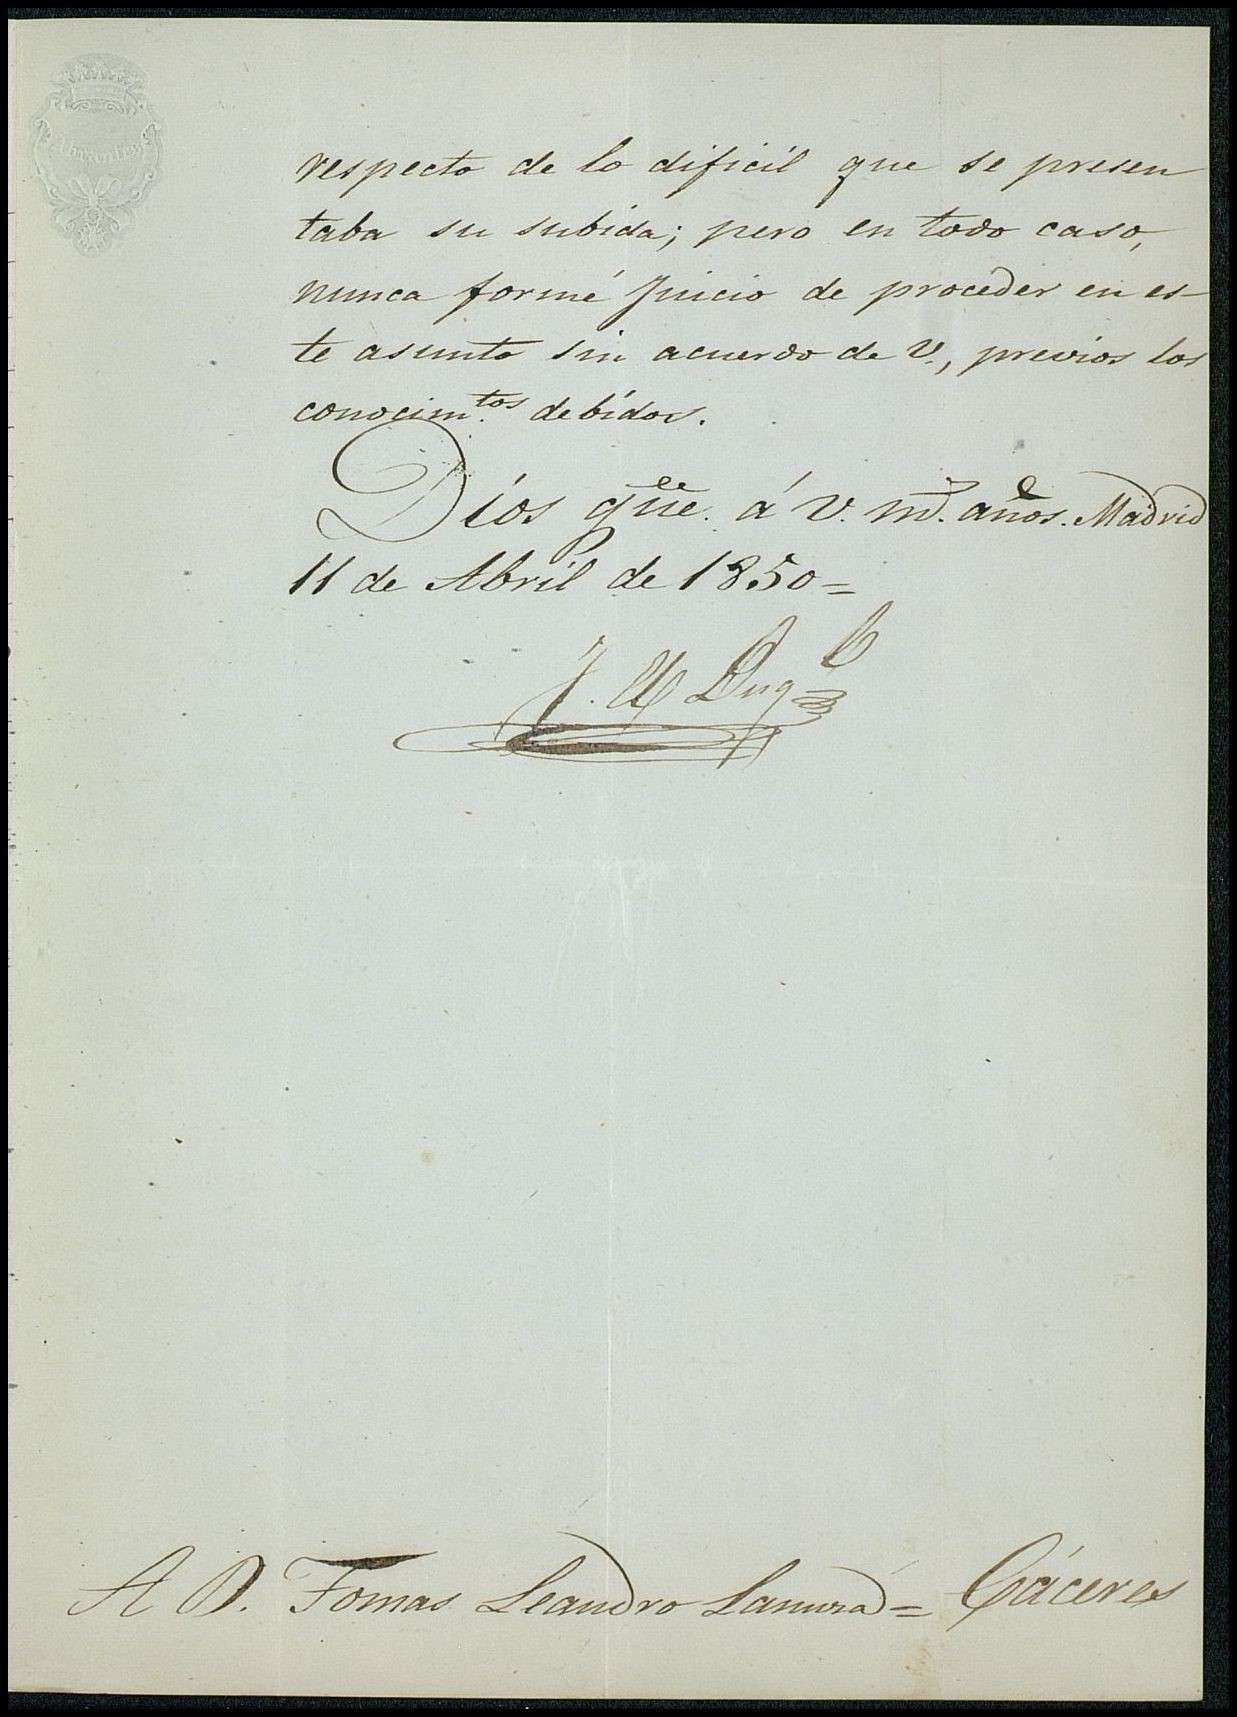 respecto de lo dificil que se presen
taba su subida; pero en todo caso,
nunca formé juicio de proceder en es-
te asunto sin acuerdo de V., previos los
conocim.tos debidos.
Dios gũe. á V. m.s años. Madrid
11 de Abril de 1850=
A D. Tomas Leandro =Cáceres